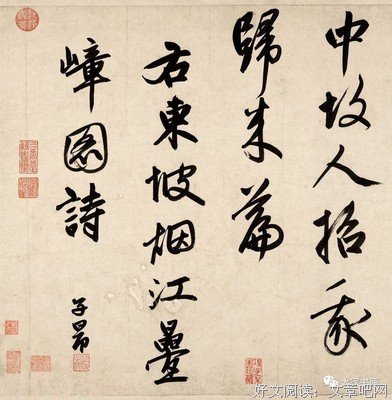 中故人招我
歸来篇
右東坡烟江疊
嶂圖詩
子昂
好文阅读：文章吧网